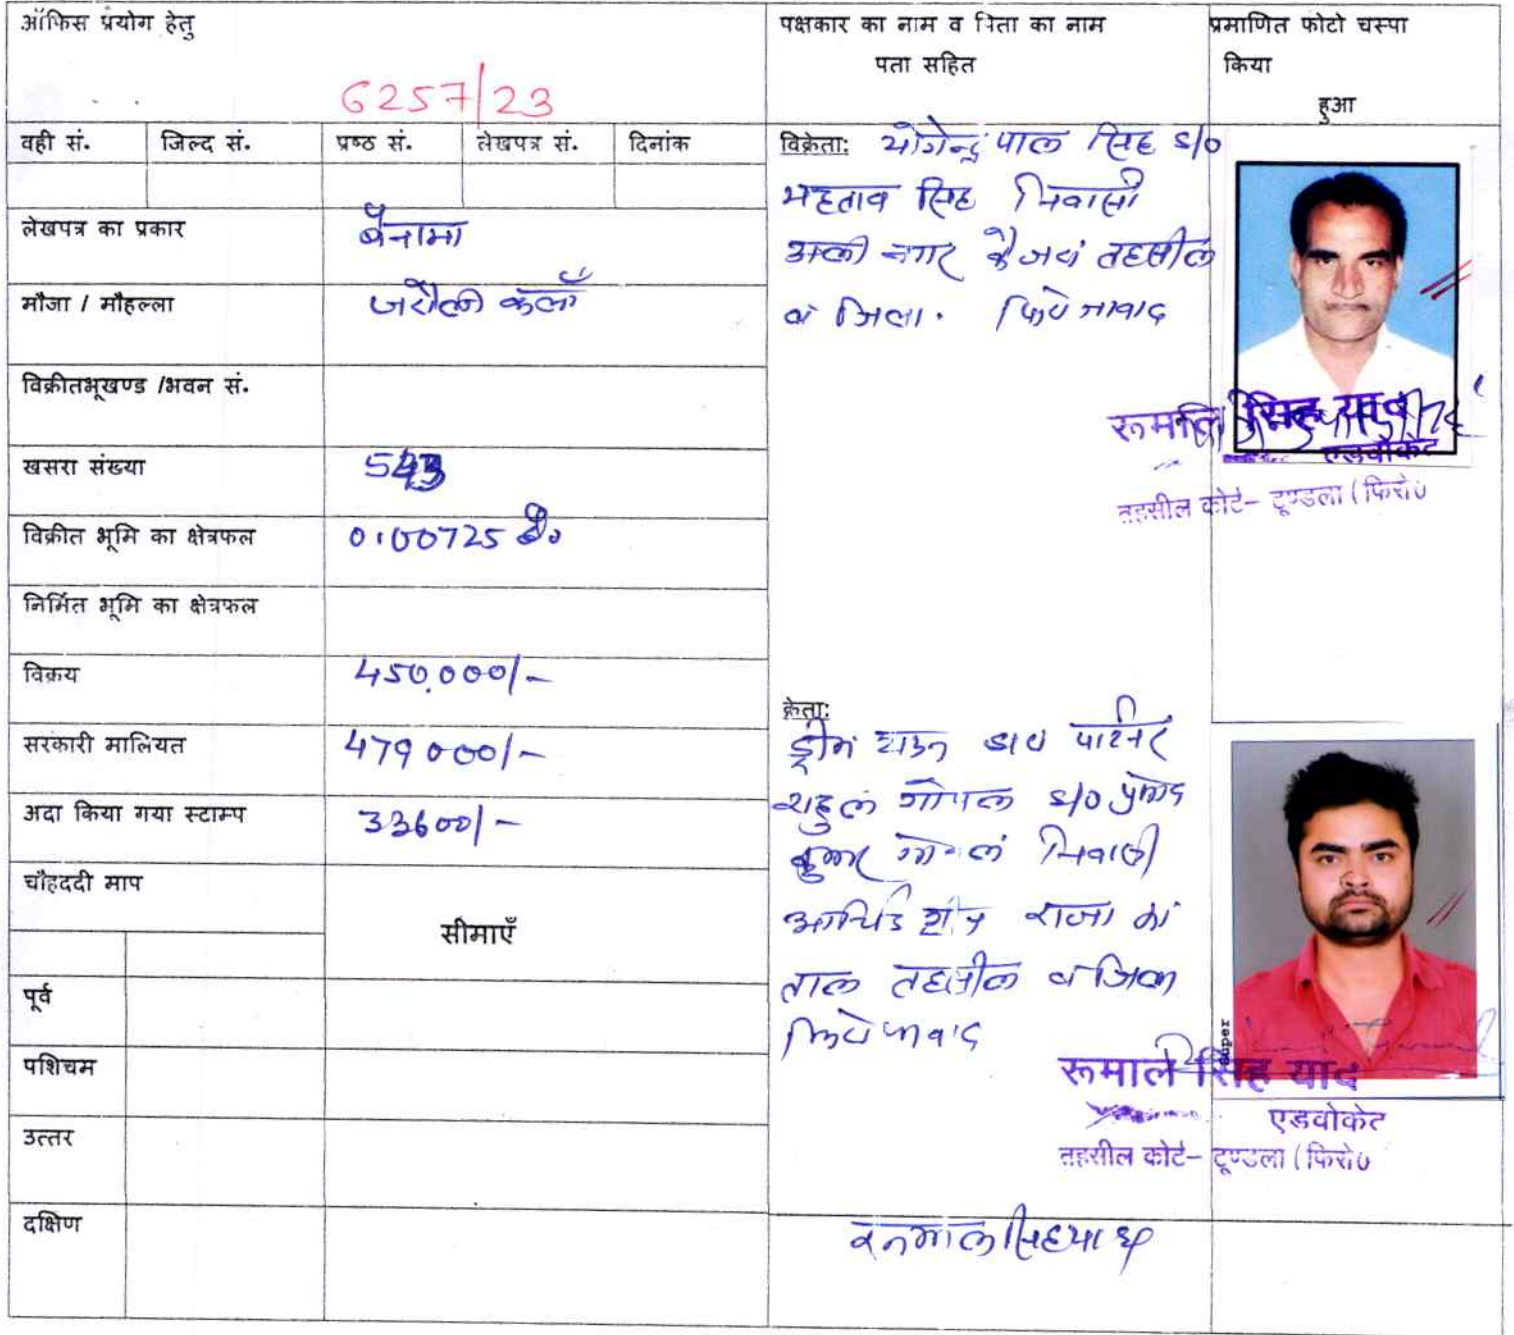 ऑफिस प्रयोग हेतु
6257/23
वही सं. जिल्द सं. प्रष्ठ सं. लेखपत्र सं. दिनांक
लेखपत्र का प्रकार बैनामा
मौजा / मौहल्ला जरौली कलाँ
विक्रीतभूखण्ड /भवन सं.
खसरा संख्या 543
विक्रीत भूमि का क्षेत्रफल 0.00725 हे०
निर्मित भूमि का क्षेत्रफल
विक्रय 450,000/-
सरकारी मालियत 479000/-
अदा किया गया स्टाम्प 33600/-
चौहददी माप
सीमाएँ
पूर्व
पशिचम
उत्तर
दक्षिण
पक्षकार का नाम व पिता का नाम
पता सहित
विक्रेता: योगेन्द्र पाल सिंह S/O
महताब सिंह निवासी
अली नगर कैंजरा तहसील
व जिला. फिरोजाबाद
क्रेता:
ड्रीम टाउन द्वारा पार्टनर
राहुल गोयल S/O प्रमोद
कुमार गोयल निवासी
आर्चिड ग्रीन राजा का
ताल तहसील व जिला
फिरोजाबाद
प्रमाणित फोटो चस्पा
किया
हुआ
रूमाल सिंह यादव
एडवोकेट
तहसील कोर्ट- टूण्डला (फिरो०
Super
रूमाल सिंह याद
एडवोकेट
तहसील कोर्ट- टूण्डला (फिरो०
रूमाल सिंह यादव